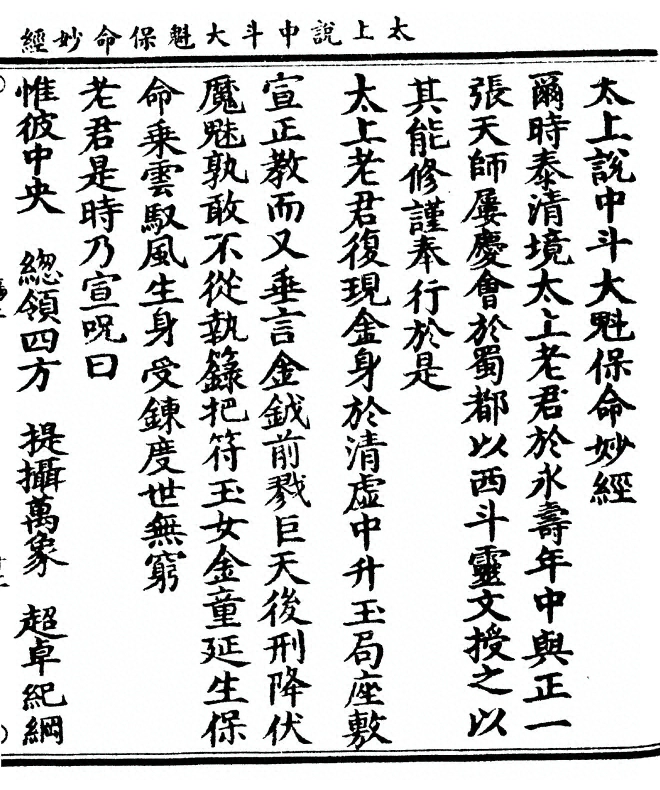 太上說中斗大魁保命妙經
太上說中斗大魁保命妙經
爾時泰清境太上老君於永壽年中與正一
張天師屢慶會於蜀都以西斗靈文授之以
其能修謹奉行於是
太上老君復現金身於清虛中升玉局座敷
宣正教而又垂言金鉞前戮巨天後刑降伏
魔魅孰敢不從執籙把符玉女金童延生保
命乘雲馭風生身受鍊度世無窮
老君是時乃宣呪曰
惟彼中央　總領四方　提攝萬象　超卓紀綱